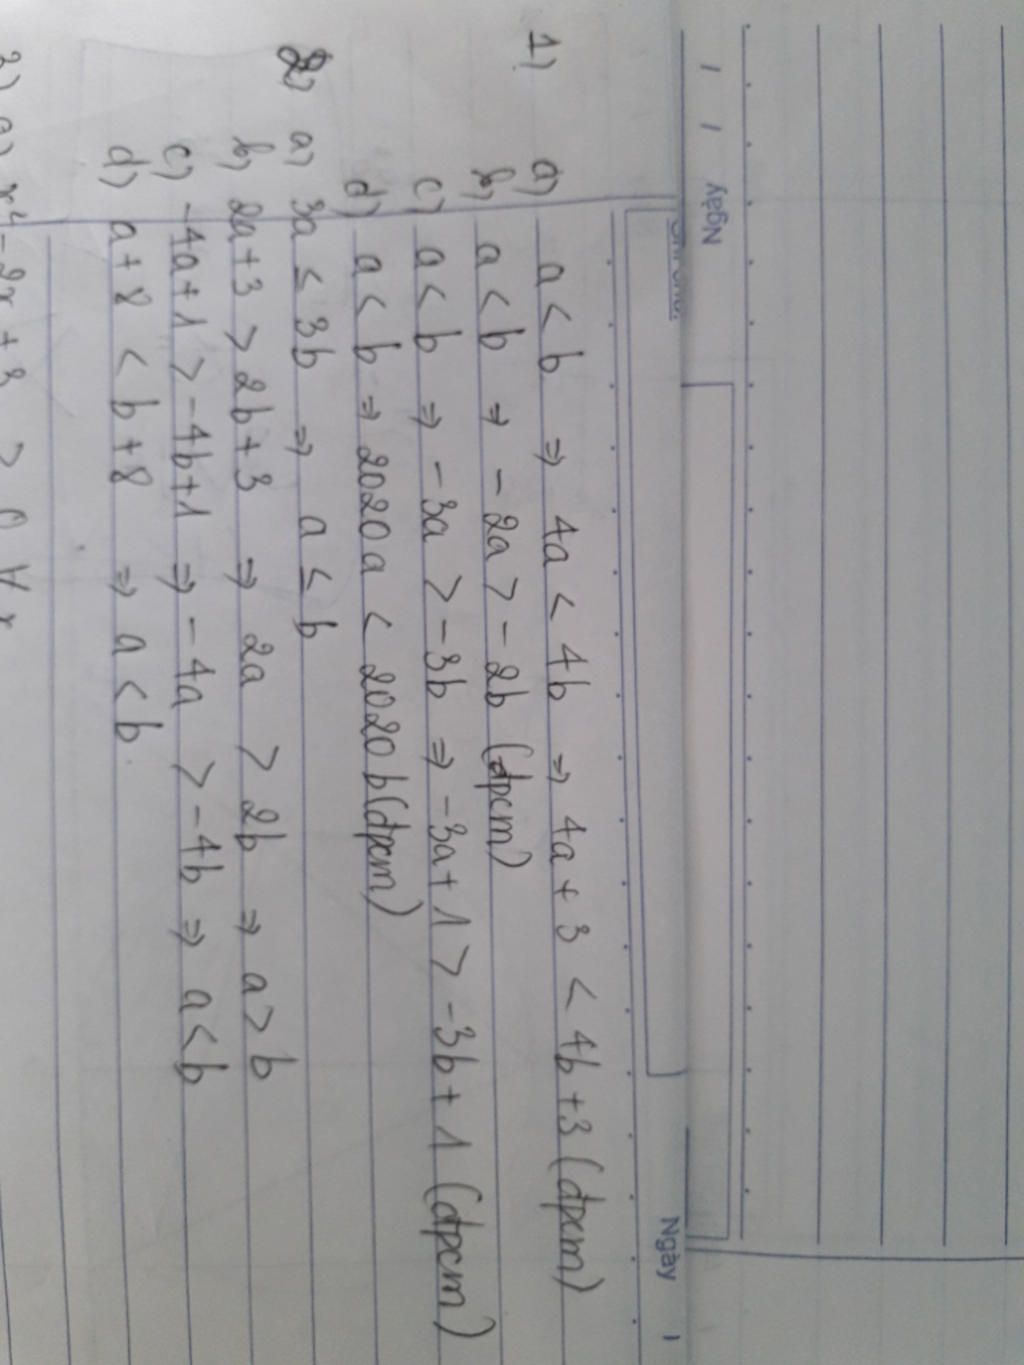 Ngày / /
Ngày /
1) a) a < b ⇒ 4a < 4b ⇒ 4a + 3 < 4b + 3 (đpcm)
b) a < b ⇒ - 2a > - 2b (đpcm)
c) a < b ⇒ - 3a > - 3b ⇒ - 3a + 1 > - 3b + 1 (đpcm)
d) a < b ⇒ 2020a < 2020b (đpcm)
2) a) 3a ≤ 3b ⇒ a ≤ b
b) 2a + 3 > 2b + 3 ⇒ 2a > 2b ⇒ a > b
c) - 4a + 1 > - 4b + 1 ⇒ - 4a > - 4b ⇒ a < b
d) a + 8 < b + 8 ⇒ a < b.
3) a) x² - 2x + 3 > 0 ∀ x